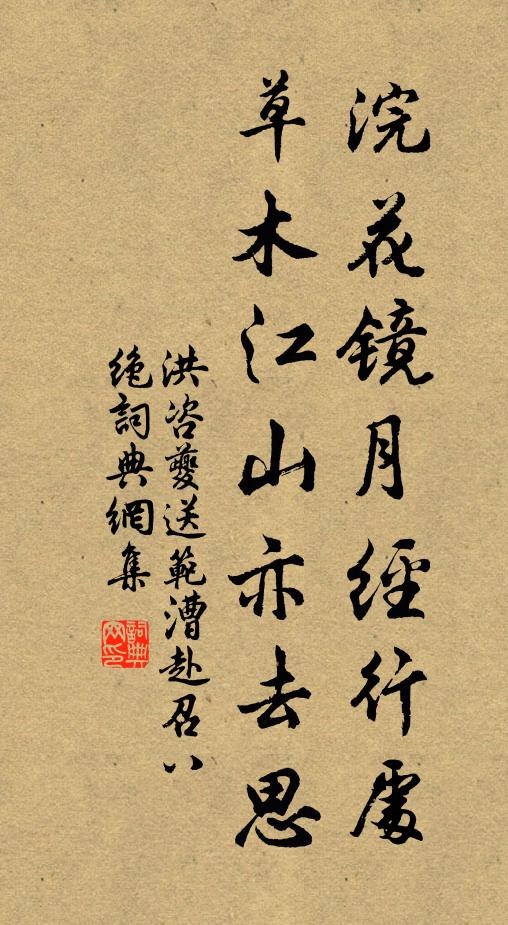 浣花鏡月經行處
草木江山亦去思
洪咨夔送範漕赴召八
絶詞典網集
詞典
网印